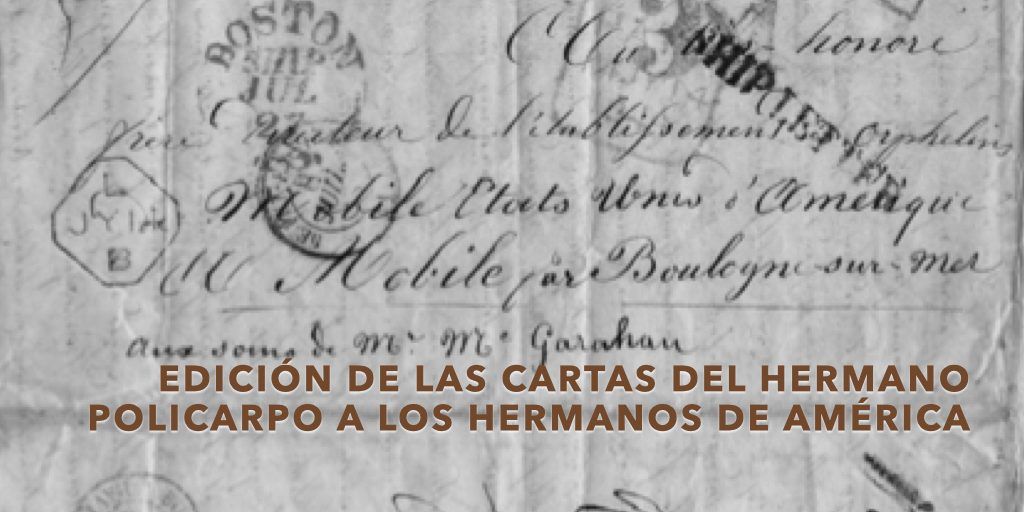 BOSTON
JUL
honoré
SHIP
frère Directeur de l'établissement orphelins
Mobile Etats Unis d'Amérique
L
B
A Mobile par Boulogne-sur-Mer
aux soins de Mr. Mc Garahan
EDICIÓN DE LAS CARTAS DEL HERMANO
POLICARPO A LOS HERMANOS DE AMÉRICA